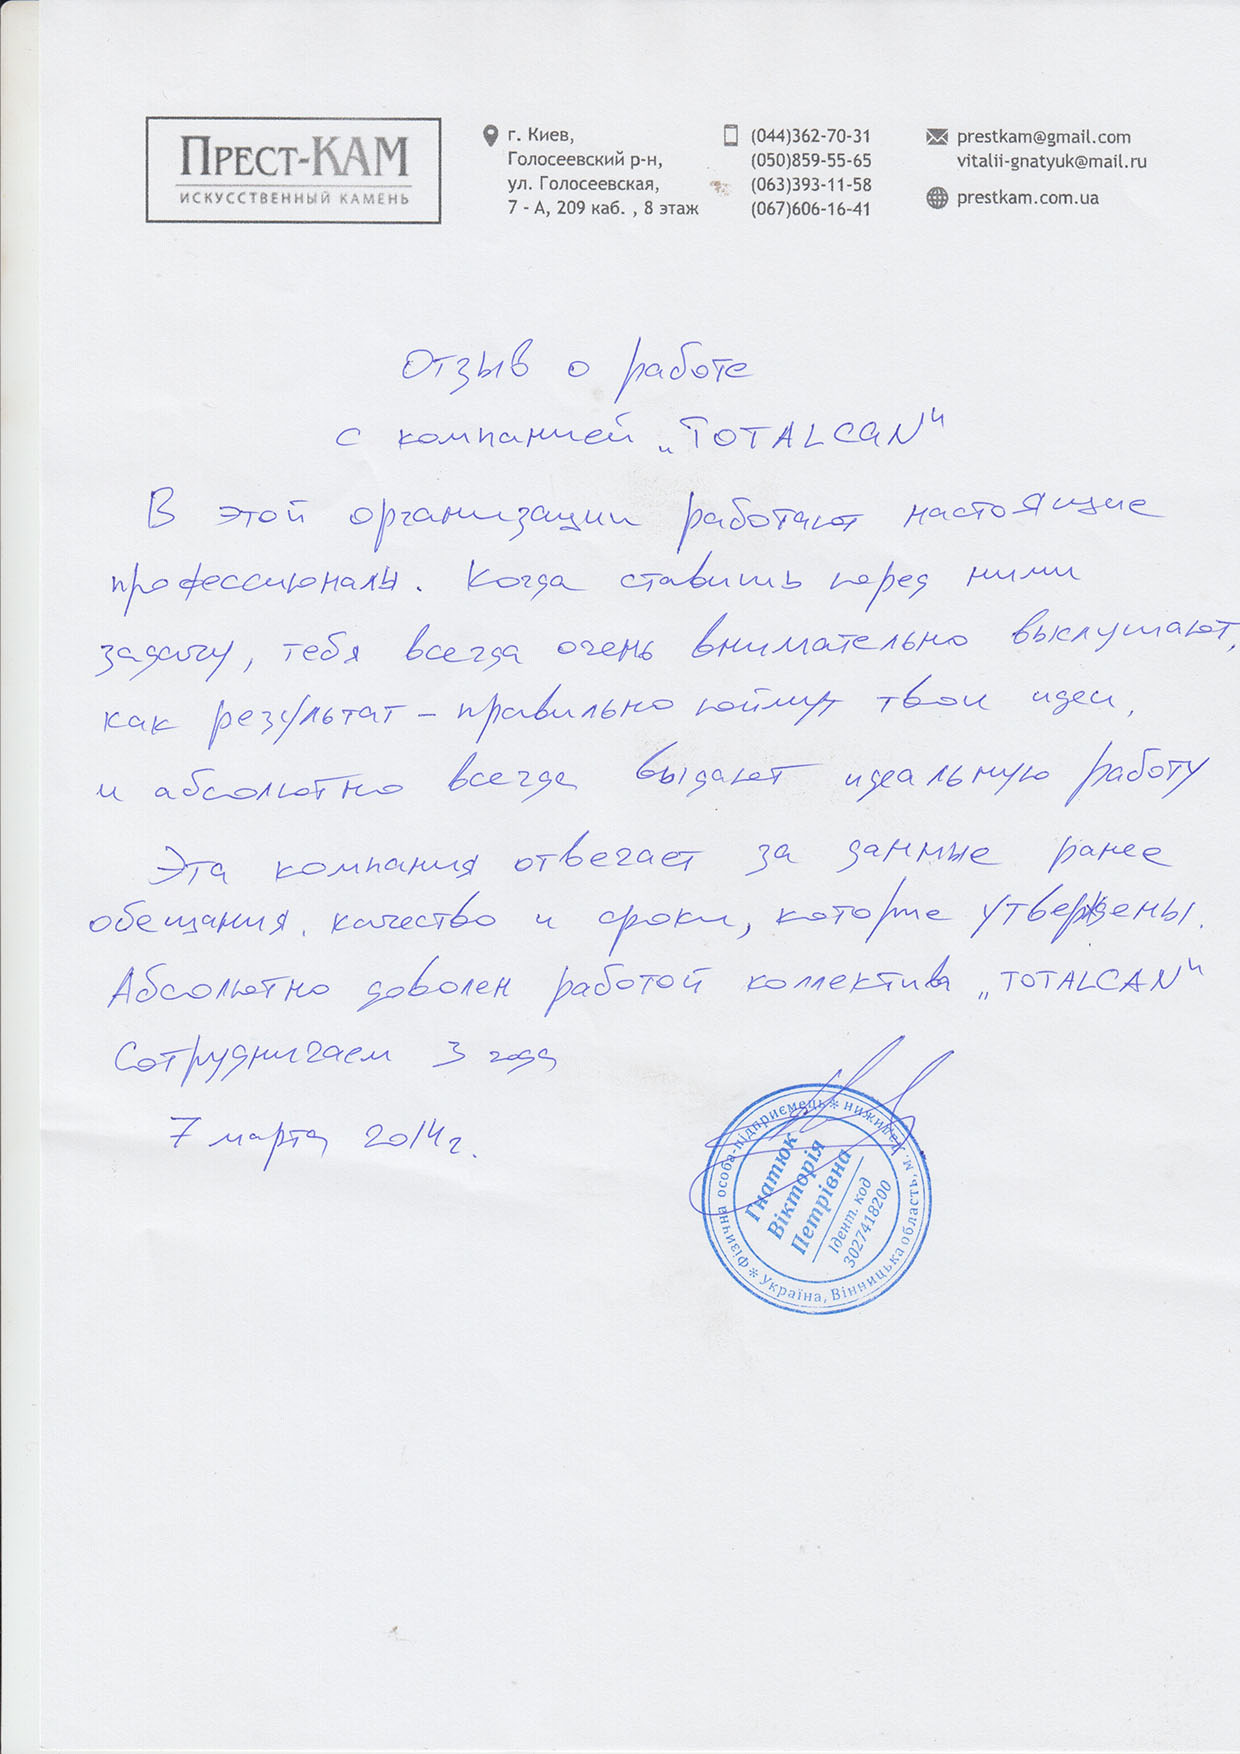 ПРЕСТ-КАМ
ИСКУССТВЕННЫЙ КАМЕНЬ
г. Киев,
Голосеевский р-н,
ул. Голосеевская,
7 - А, 209 каб. , 8 этаж
(044)362-70-31
(050)859-55-65
(063)393-11-58
(067)606-16-41
prestkam@gmail.com
vitalii-gnatyuk@mail.ru
prestkam.com.ua
Отзыв о работе
с компанией „TOTALCAN"
В этой организации работают настоящие
профессионалы. Когда ставишь перед ними
задачу, тебя всегда очень внимательно выслушают,
как результат – правильно поймут твои идеи,
и абсолютно всегда выдают идеальную работу
Эта компания отвечает за данные ранее
обещания, качество и сроки, которые утверждены.
Абсолютно доволен работой коллектива „TOTALCAN"
Сотрудничаем 3 года
7 марта 2014г.
фізична особа-підприємець * Україна, Вінницька область, м.
Гнатюк
Вікторія
Петрівна
Ідент. код
3027418200